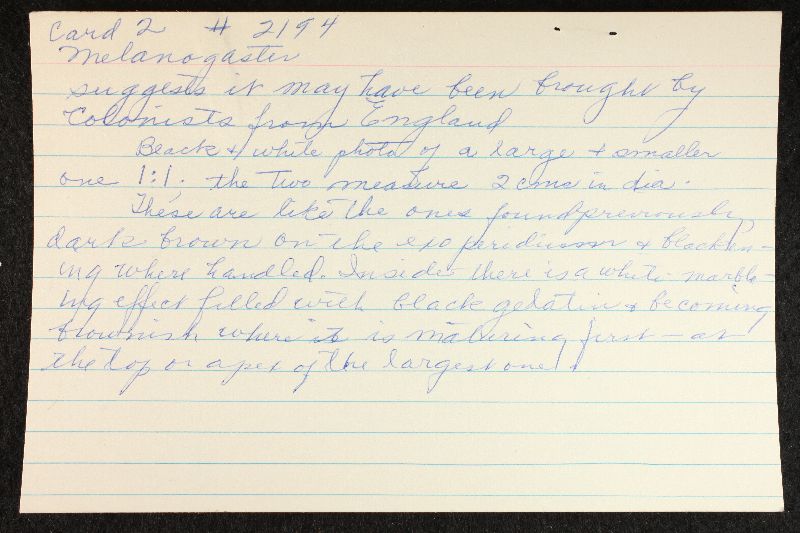 Card 2 # 2194
Melanogaster
suggests it may have been brought by
Colonists from England
Black & white photo of a large & smaller
one 1:1; the two measure 2 cms in dia.
These are like the ones found previously,
dark brown on the exoperidium & blacken-
ing where handled. Inside there is a white marbl-
ing effect filled with black gelatin & becoming
brownish where it is maturing first - at
the top or apex of the largest one.